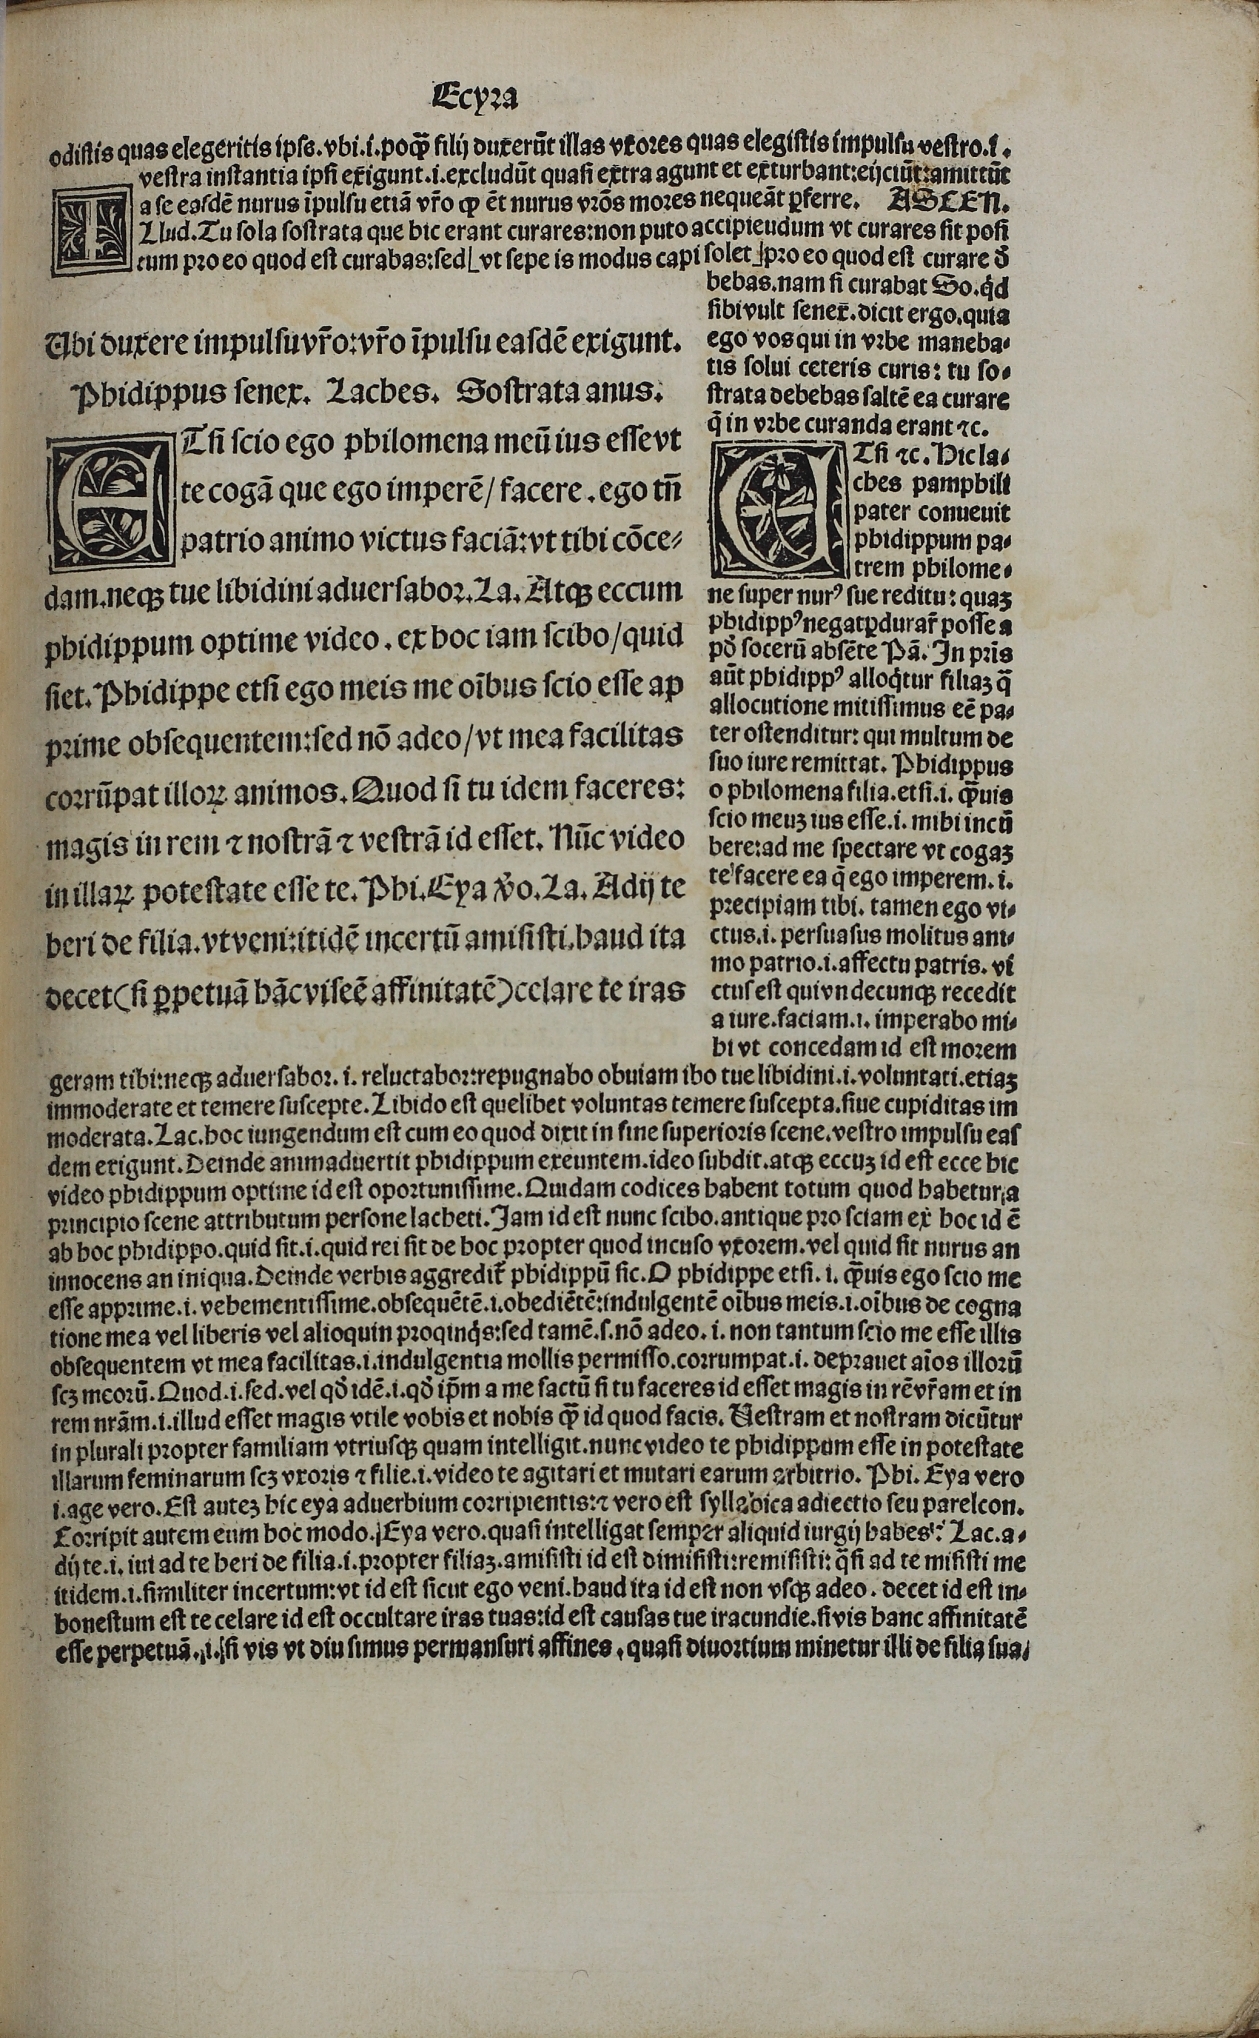 Ecyra
odistis quas elegeritis ipse. vbi .i. poqꝫ̄ filij duxerūt illas vxores quas elegistis impulsu vestro .i.
vestra instantia ipsi exigunt .i. excludūt quasi extra agunt et exturbant: eijciūt: amittūt
a se easdē nurus īpulsu etiā vr̄o qꝫ̄ ēt nurus vr̄os mores nequeāt ꝑferre. ASCEN.
ILlud. Tu sola sostrata que hic erant curares: non puto accipiendum vt curares sit posi
tum pro eo quod est curabas: sed vt sepe is modus capi solet pro eo quod est curare đ
bebas. nam si curabat So. qͥd
sibi vult senex. dicit ergo. quia
ego vos qui in vrbe maneba⸗
tis solui ceteris curis: tu so⸗
strata debebas saltē ea curare
q̄ in vrbe curanda erant ⁊c.
Ubi duxere impulsu vr̄o: vr̄o īpulsu easdē exigunt.
Phidippus senex. Laches. Sostrata anus.
ETsi scio ego philomena meū ius esse vt
te cogā que ego imperē / facere. ego tn̄
patrio animo victus faciā: vt tibi cōce⸗
dam. neqꝫ tue libidini aduersabor. La. Atqꝫ eccum
phidippum optime video. ex hoc iam scibo / quid
siet. Phidippe etsi ego meis me oībus scio esse ap
prime obsequentem: sed nō adeo / vt mea facilitas
corrūpat illoꝝ animos. Quod si tu idem faceres:
magis in rem ⁊ nostrā ⁊ vestrā id esset. Nūc video
in illaꝝ potestate esse te. Phi. Eya v̄o. La. Adij te
heri de filia. vt veni: itidē incertū amisisti. haud ita
decet (si ꝑpetuā hāc vis eē affinitatē) celare te iras
ETsi ⁊c. Hic la⸗
ches pamphili
pater conuenit
phidippum pa⸗
trem philome⸗
ne super nurꝰ sue reditu: quaꝫ
phidippꝰ negat ꝑdurar̄ posse a
pđ socerū absēte Pā. In pr̄is
aūt phidippꝰ alloqͥtur filiaꝫ q̄
allocutione mitissimus eē pa⸗
ter ostenditur: qui multum de
suo iure remittat. Phidippus
o philomena filia. etsi .i. qꝫ̄uis
scio meuꝫ ius esse .i. mihi incū
bere: ad me spectare vt cogaꝫ
te facere ea q̄ ego imperem .i.
precipiam tibi. tamen ego vi⸗
ctus .i. persuasus molitus ani⸗
mo patrio .i. affectu patris. vi
ctus est qui vndecunqꝫ recedit
a iure. faciam .i. imperabo mi⸗
hi vt concedam id est morem
geram tibi: neqꝫ aduersabor .i. reluctabor: repugnabo obuiam ibo tue libidini .i. voluntati. etiaꝫ
immoderate et temere suscepte. Libido est quelibet voluntas temere suscepta. siue cupiditas im
moderata. Lac. hoc iungendum est cum eo quod dixit in fine superioris scene. vestro impulsu eas
dem exigunt. Deinde animaduertit phidippum exeuntem. ideo subdit. atqꝫ eccuꝫ id est ecce hic
video phidippum optime id est oportunissime. Quidam codices habent totum quod habetur a
principio scene attributum persone lacheti. Jam id est nunc scibo. antique pro sciam ex hoc id ē
ab hoc phidippo. quid sit .i. quid rei sit de hoc propter quod incuso vxorem. vel quid sit nurus an
innocens an iniqua. Deinde verbis aggredit᷑ phidippū sic. O phidippe etsi .i. qꝫ̄uis ego scio me
esse apprime .i. vehementissime. obsequētē .i. obediētē: indulgentē oībus meis .i. oībus de cogna
tione mea vel liberis vel alioquin proqinqͥs: sed tamē .s. nō adeo .i. non tantum scio me esse illis
obsequentem vt mea facilitas .i. indulgentia mollis permissio. corrumpat .i. deprauet aīos illorū
scꝫ meorū. Quod .i. sed. vel qđ idē .i. qđ ip̄m a me factū si tu faceres id esset magis in rē vr̄am et in
rem nr̄am .i. illud esset magis vtile vobis et nobis qꝫ̄ id quod facis. Vestram et nostram dicūtur
in plurali propter familiam vtriusqꝫ quam intelligit. nunc video te phidippum esse in potestate
illarum feminarum scꝫ vxoris ⁊ filie .i. video te agitari et mutari earum arbitrio. Phi. Eya vero
.i. age vero. Est auteꝫ hic eya aduerbium corripientis: ⁊ vero est syllabica adiectio seu parelcon.
Corripit autem eum hoc modo. Eya vero. quasi intelligat semper aliquid iurgij habes. Lac. a⸗
dij te .i. iui ad te heri de filia .i. propter filiaꝫ. amisisti id est dimisisti: remisisti: q̄si ad te misisti me
itidem .i. similiter incertum: vt id est sicut ego veni. haud ita id est non vsqꝫ adeo. decet id est in⸗
honestum est te celare id est occultare iras tuas: id est causas tue iracundie. si vis hanc affinitatē
esse perpetuā .i. si vis vt diu simus permansuri affines. quasi diuortium minetur illi de filia sua.